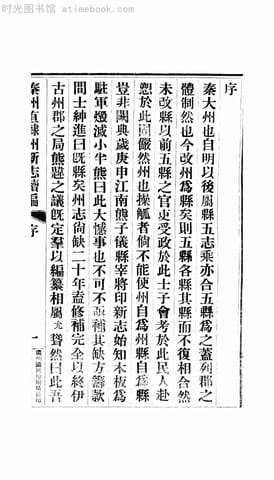 时光图书馆
序
秦大州也自明以後屬縣五志乘亦合五縣爲之蓋列郡之
體制然也今改州爲縣矣則五縣各縣其縣而不復相合然
未改縣以前五縣之官吏受政於此士子會考於此民人赴
愬於此固儼然州也操觚者倘不能使州自爲州縣自爲縣
豈非闕典歲庚申江南熊子儀縣宰將印新志始知木板爲
駐軍燬滅小半熊曰此大憾事也不可不亟補其缺方籌款
間士紳進曰旣縣矣州志尙缺二十年盍修補完全以終伊
古州郡之局熊韙之議旣定羣以編纂相屬尤聳然曰此吾
秦州直隸州新志續編
序
一